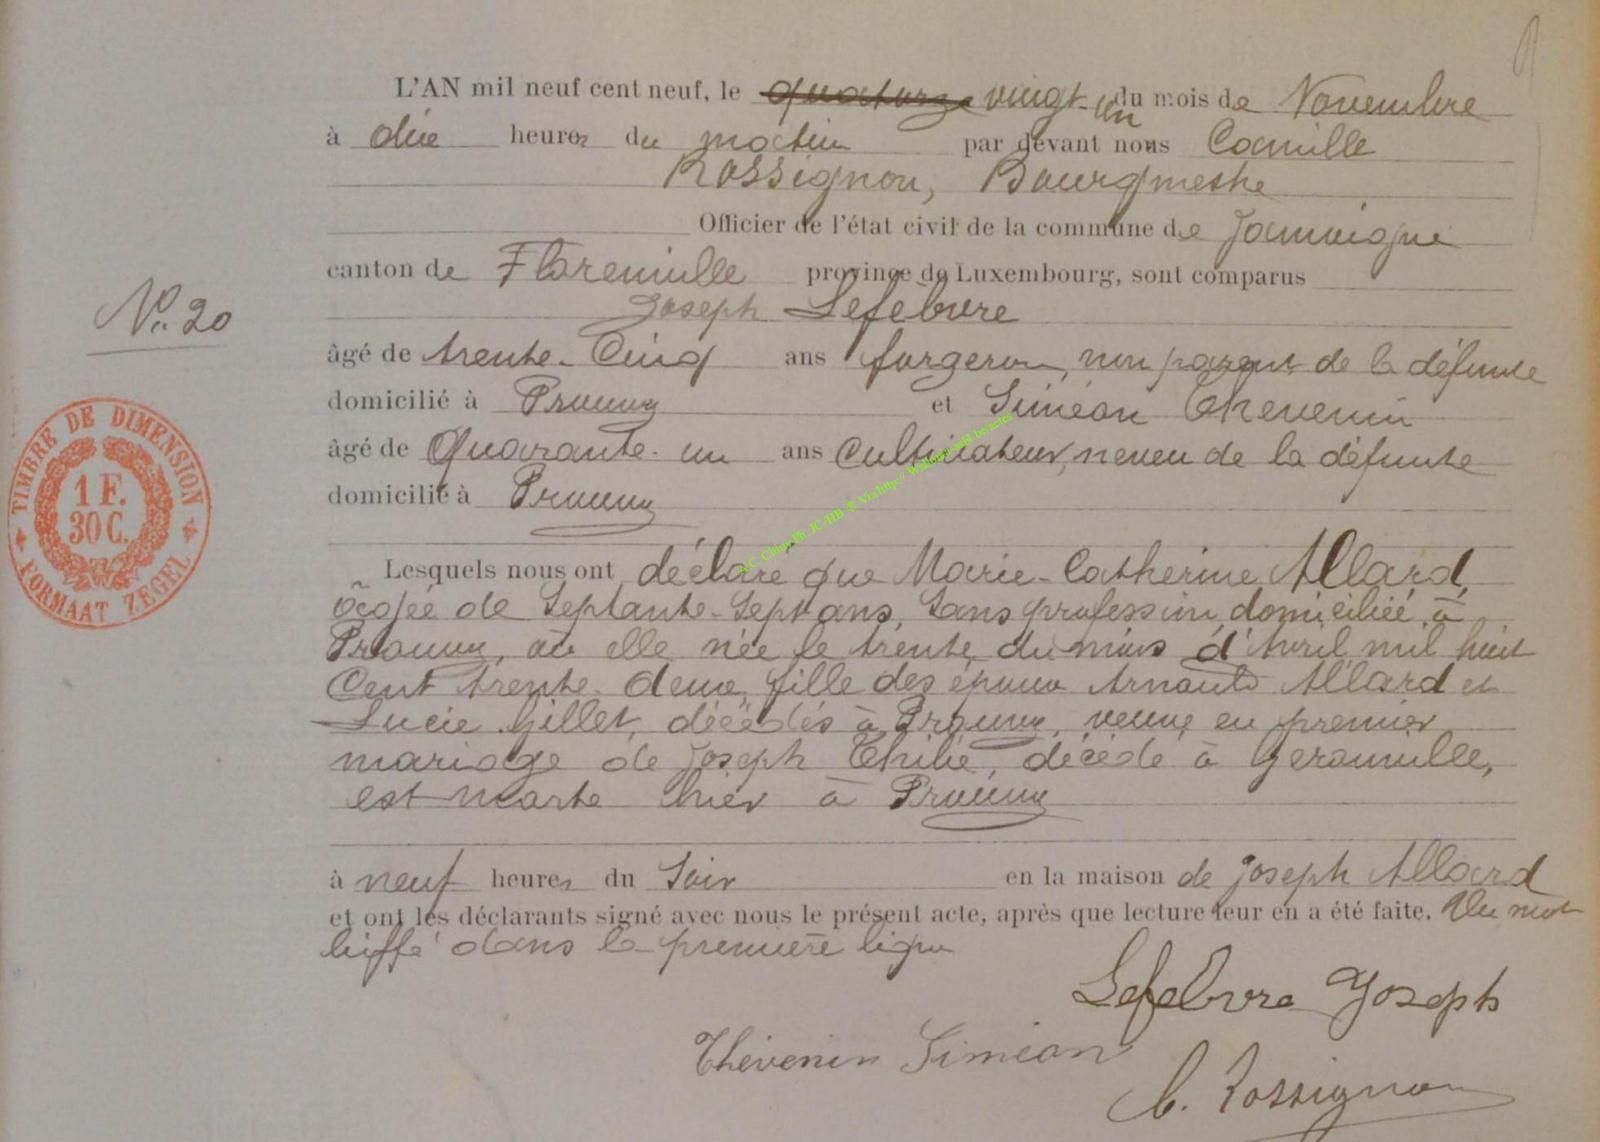 L'AN mil neuf cent neuf, le quatorze vingt-un du mois de Novembre
à dix heures du matin par devant nous Camille
Rossignon, Bourgmestre
Officier de l'état civil de la commune de Jamoigne
canton de Florenville province de Luxembourg, sont comparus
Joseph Lefebvre
N° 20
âgé de trente-Cinq ans forgeron, non parent de la défunte
domicilié à Prouvy et Siméon Thévenin
âgé de Quarante-un ans Cultivateur, neveu de la défunte
domicilié à Prouvy
TIMBRE DE DIMENSION
1 F.
30 C.
FORMAAT ZEGEL
Lesquels nous ont déclaré que Marie-Catherine Allard,
âgée de Septante-Sept ans, Sans profession, domiciliée à
Prouvy, où elle née le trente du mois d'Avril mil huit
Cent trente-deux, fille des époux Arnould Allard et
Lucie Gillet, décédés à Prouvy, veuve en premier
mariage de Joseph Thilié, décédé à Gérouville,
est morte hier à Prouvy
à neuf heures du Soir en la maison de Joseph Allard
et ont les déclarants signé avec nous le présent acte, après que lecture leur en a été faite. Un mot
biffé dans la première ligne
Lefebvre Joseph
Thévenin Siméon
C. Rossignon